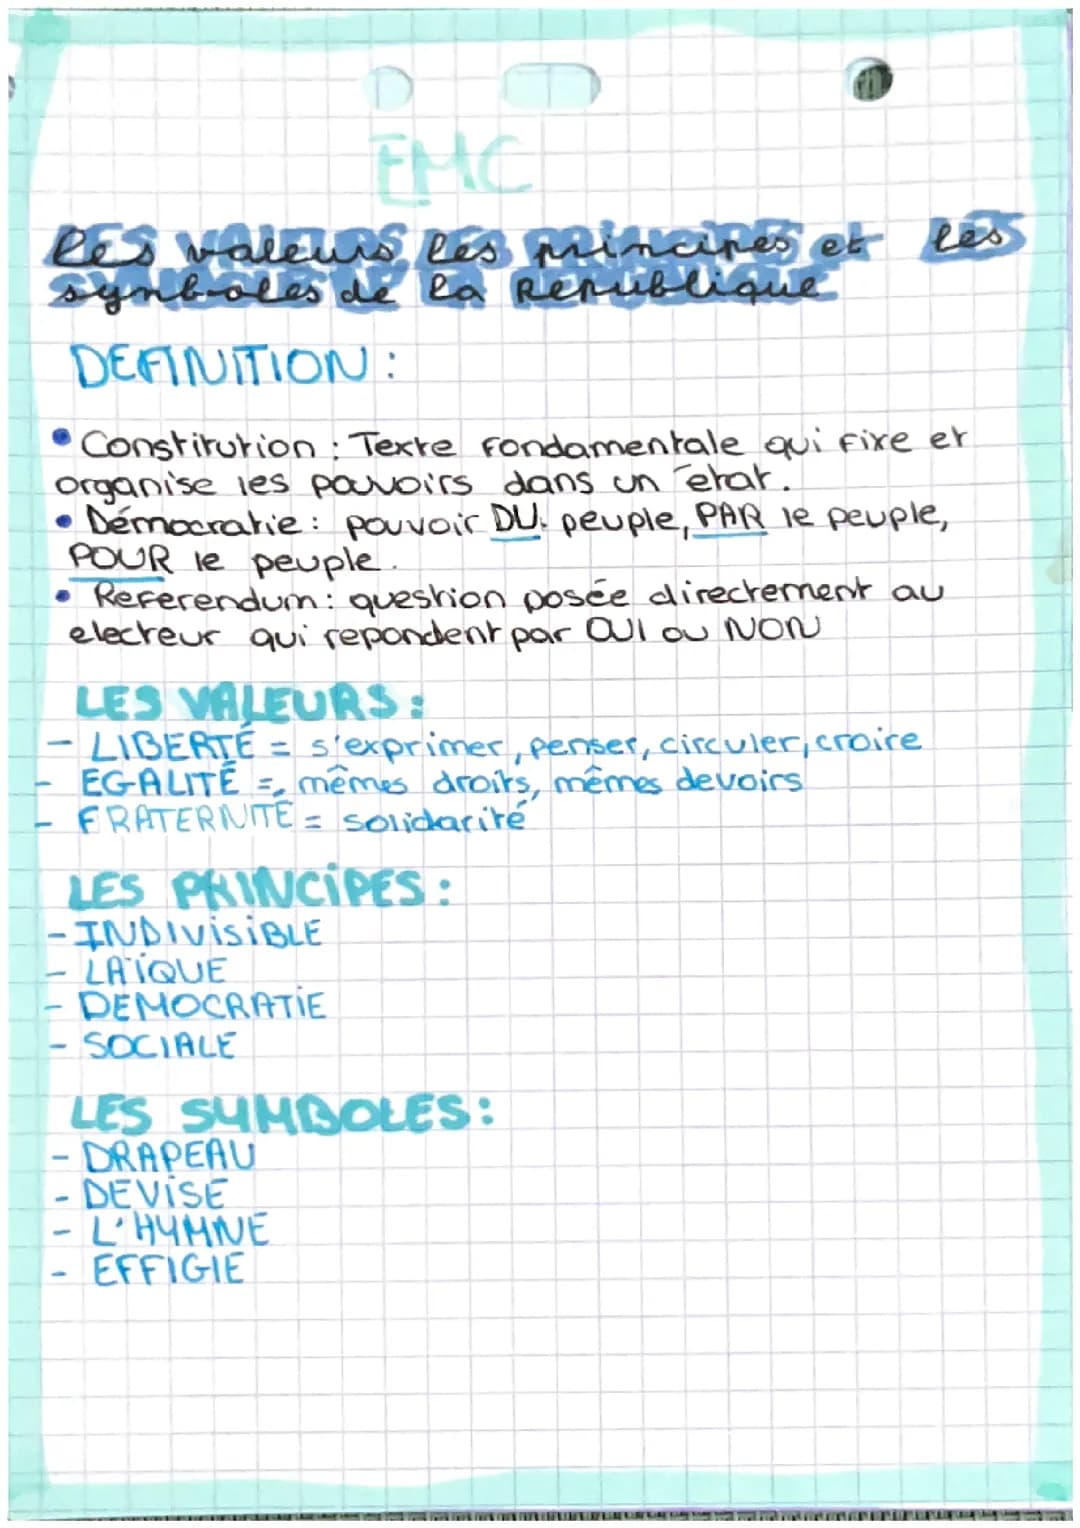 EMC
les valeurs, les principes et les
symboles de la Republique
DEFINITION :
• Constitution : Texte fondamentale qui fixe et
organise les pouvoirs dans un état.
• Démocratie : pouvoir DU peuple, PAR le peuple,
POUR le peuple.
• Referendum : question posée directement au
electeur qui repondent par OUI ou NON
LES VALEURS :
- LIBERTÉ = s'exprimer, penser, circuler, croire
- EGALITÉ = mêmes droits, mêmes devoirs
- FRATERNITÉ = solidarité
LES PRINCIPES :
- INDIVISIBLE
- LAÏQUE
- DEMOCRATIE
- SOCIALE
LES SYMBOLES :
- DRAPEAU
- DEVISE
- L'HYMNE
- EFFIGIE